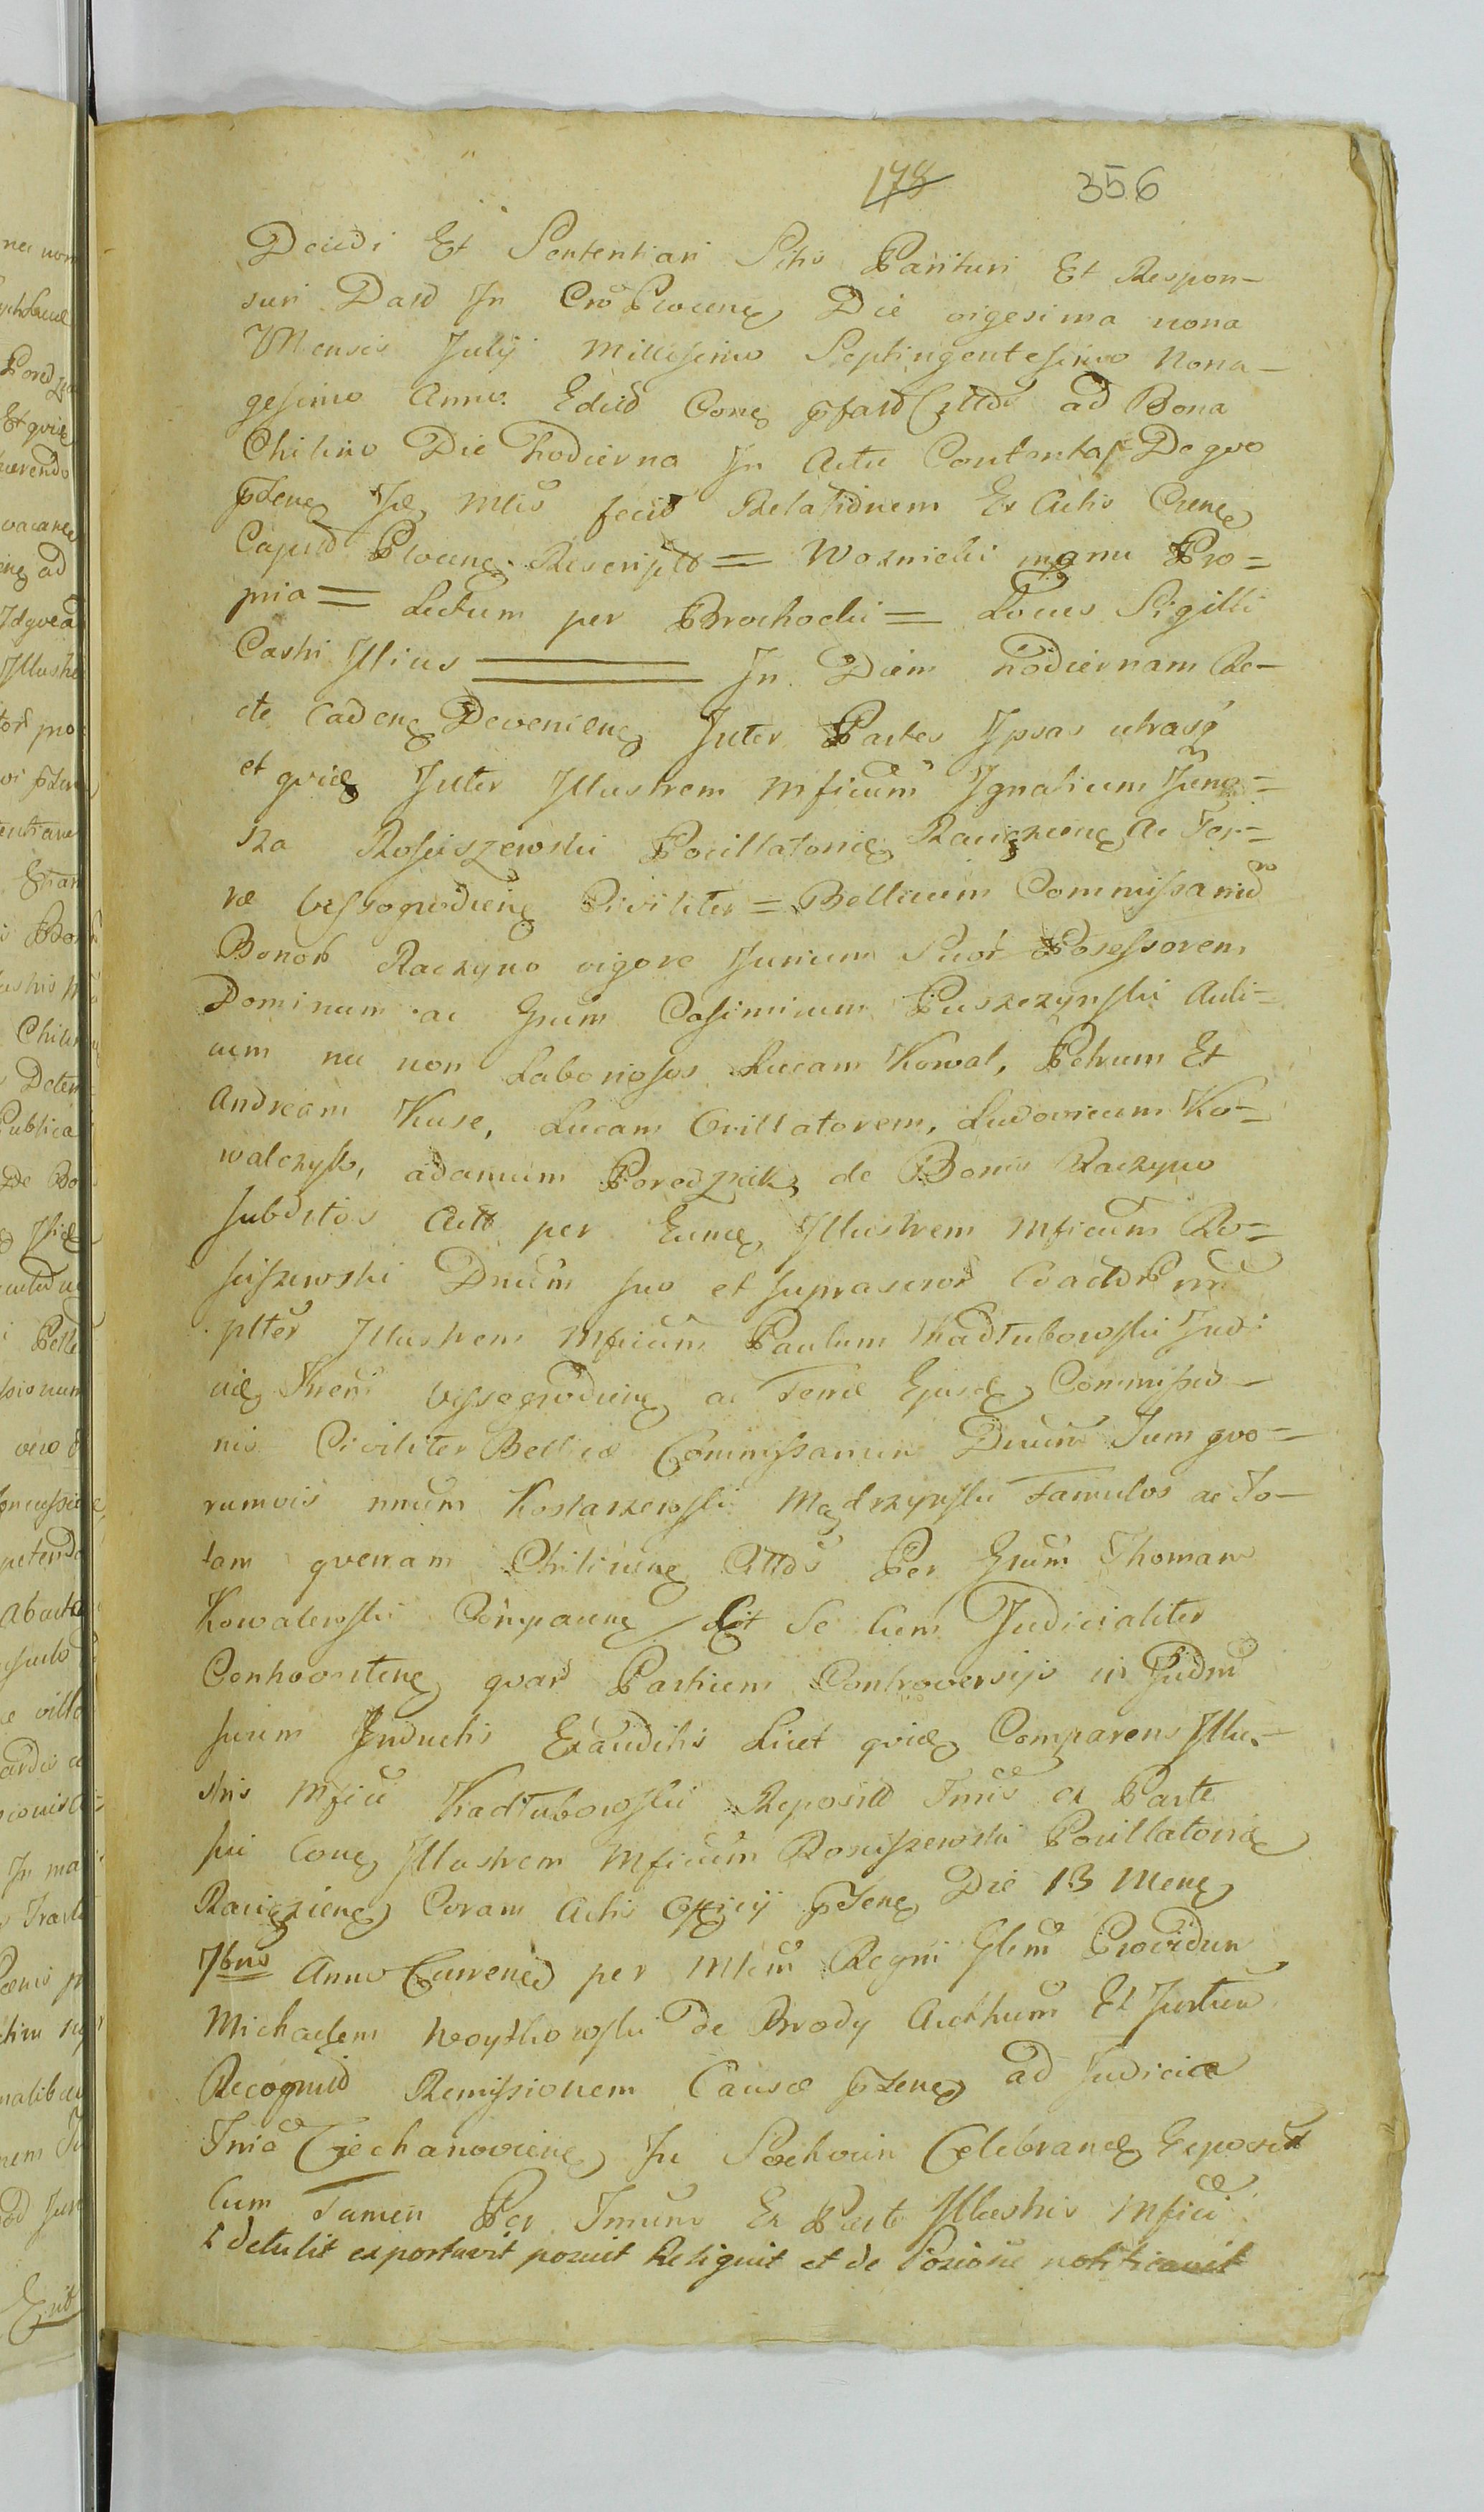 178 356
Decidi Et Sententiari Sitis Parituri Et Respon-
suri Datd In Cro Plocene Die vigesima nona
Mensis Julij Millesimo Septingentesimo Nona-
gesimo Anno. Edicd Cone ad Bona
Chilino Die hodierna In Actu Contenta De quo
Mlis fecit Relationem Ex Actis
Plocene Rescript = Woznicki manu Pro=
pria = Lectum per Brochocki = Locus Sigilli
Castri Illius In Diem hodiernam Re-
cte cadene Deveniene Inter Partes Ipsas utrasq
et quide Inter Illustrem Mficum Ignatium Juno=
sza Rosciszewski Pocillatorie Raciezene Ac Ter=
ræ Vyssogrodiene Civiliter = Bellicum Commissarium
Bonor Raczyno vigore Jurium Suor Possessorem
Dominum ac Grum Casimirum Puszczynski Auli=
cum nec non Laboriosos Lucam Kowal, Petrum Et
Andream Kuse, Lucam Ovillatorem, Ludovicum Ko=
walczyk, adamum Poredzik de Bonis Raczyno
subditos Actt per Eume Illustrem Mficum Ro=
sciszewski Dnum suo et supra
plter Illustrem Mficum Paulum Kadlubowski Judi
cie Vyssogrodiene ac Terræ Ejusd Commissio-
nis Civiliter Bellicæ Commissarium Dnum Tum quo=
rumvis nnum Kostarzewski Mądrzynski Famulos ac To-
tam Chiliciene Citts Per Grum Thomam
Kowalewski Comparene Se Cum Judicialiter
quar Partium Controversijs in Judm
suum Inductis Exauditis Licet quide Comparens Illu-
stris Mfici Kadlubowski Reposult Tmis ex Parte
sui Cone Illustrem Mficum Rosciszewski Pocillatorie
Raciezienc Coram Actis Officij Die 13 Mene
7bris Anno Currened per Mtem Regni Glem Providum
Michaelem Woytkowski de Brody Et Juxtim
Recognitd Remissionem Causæ ad Judicia
Ciechanoviene In Celebrande Exposit
Cum Tamen Per Tmum Ex Parte Illustris Mfici
detulit exportavit posuit Reliquit et de notificavit